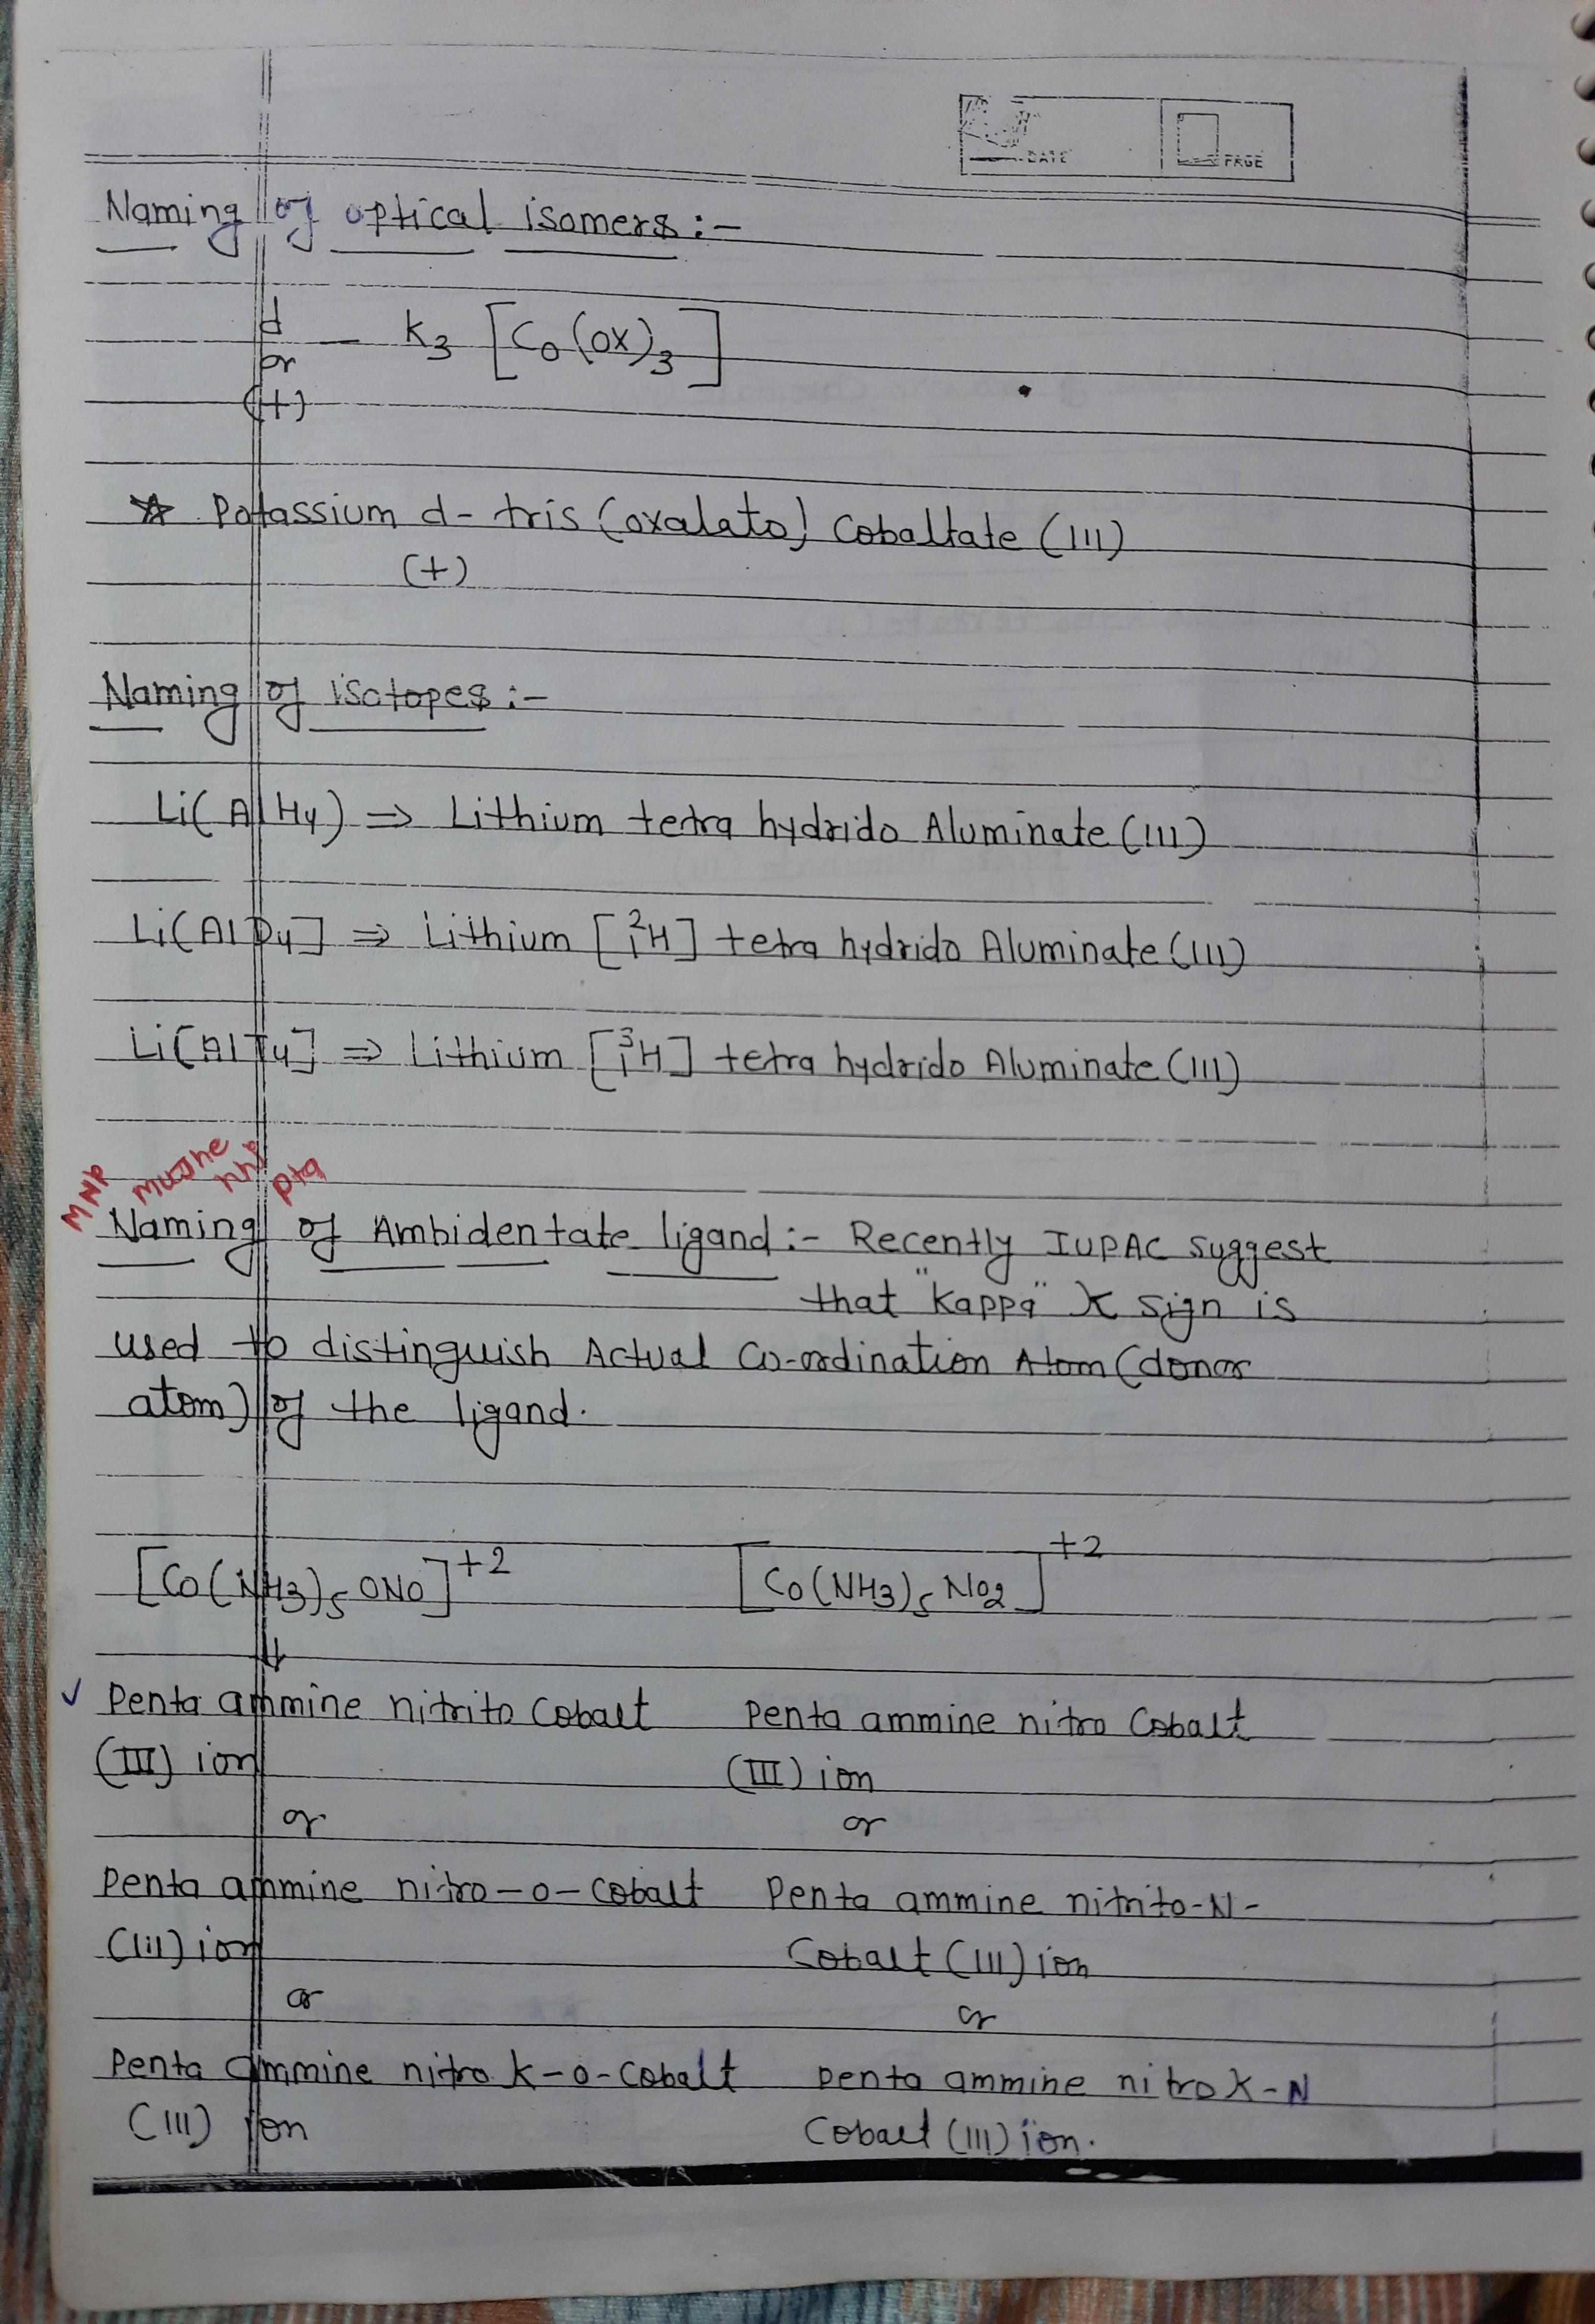 DATE PAGE
Naming of optical isomers :-
d
or
(+)
— K₃ [Co(ox)₃]
☆ Potassium d- tris (oxalato) Cobaltate (III)
(+)
Naming of isotopes :-
Li(AlH₄) ⇒ Lithium tetra hydrido Aluminate (III)
Li[AlD₄] ⇒ Lithium [²₁H] tetra hydrido Aluminate (III)
Li[AlT₄] ⇒ Lithium [³₁H] tetra hydrido Aluminate (III)
MNP mujhe nhi pta
Naming of Ambidentate ligand :- Recently IUPAC suggest
that "kappa" K sign is
used to distinguish Actual Co-ordination Atom (donor
atom) of the ligand.
[Co(NH3)₅ ONO]⁺² [Co(NH3)₅ NO₂]⁺²
↓
✓ Penta ammine nitrito Cobalt Penta ammine nitro Cobalt
(III) ion (III) ion
or or
Penta ammine nitro-o-Cobalt Penta ammine nitrito-N-
(III) ion Cobalt (III) ion
or or
Penta ammine nitro K-o-Cobalt penta ammine nitro K-N
(III) ion Cobalt (III) ion.